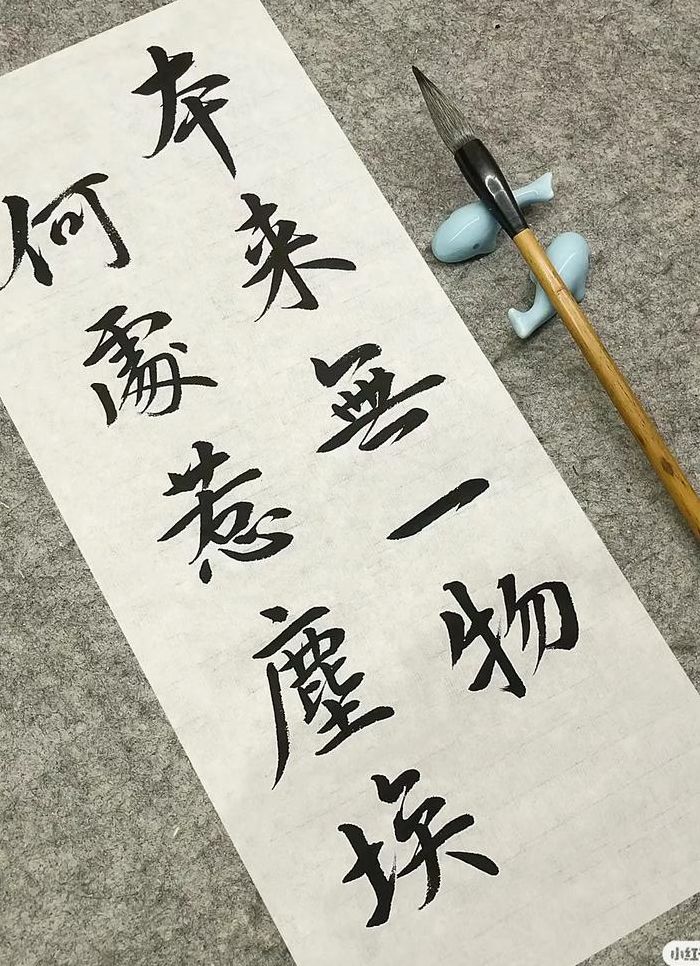 本来無一物
何處惹塵埃
小红